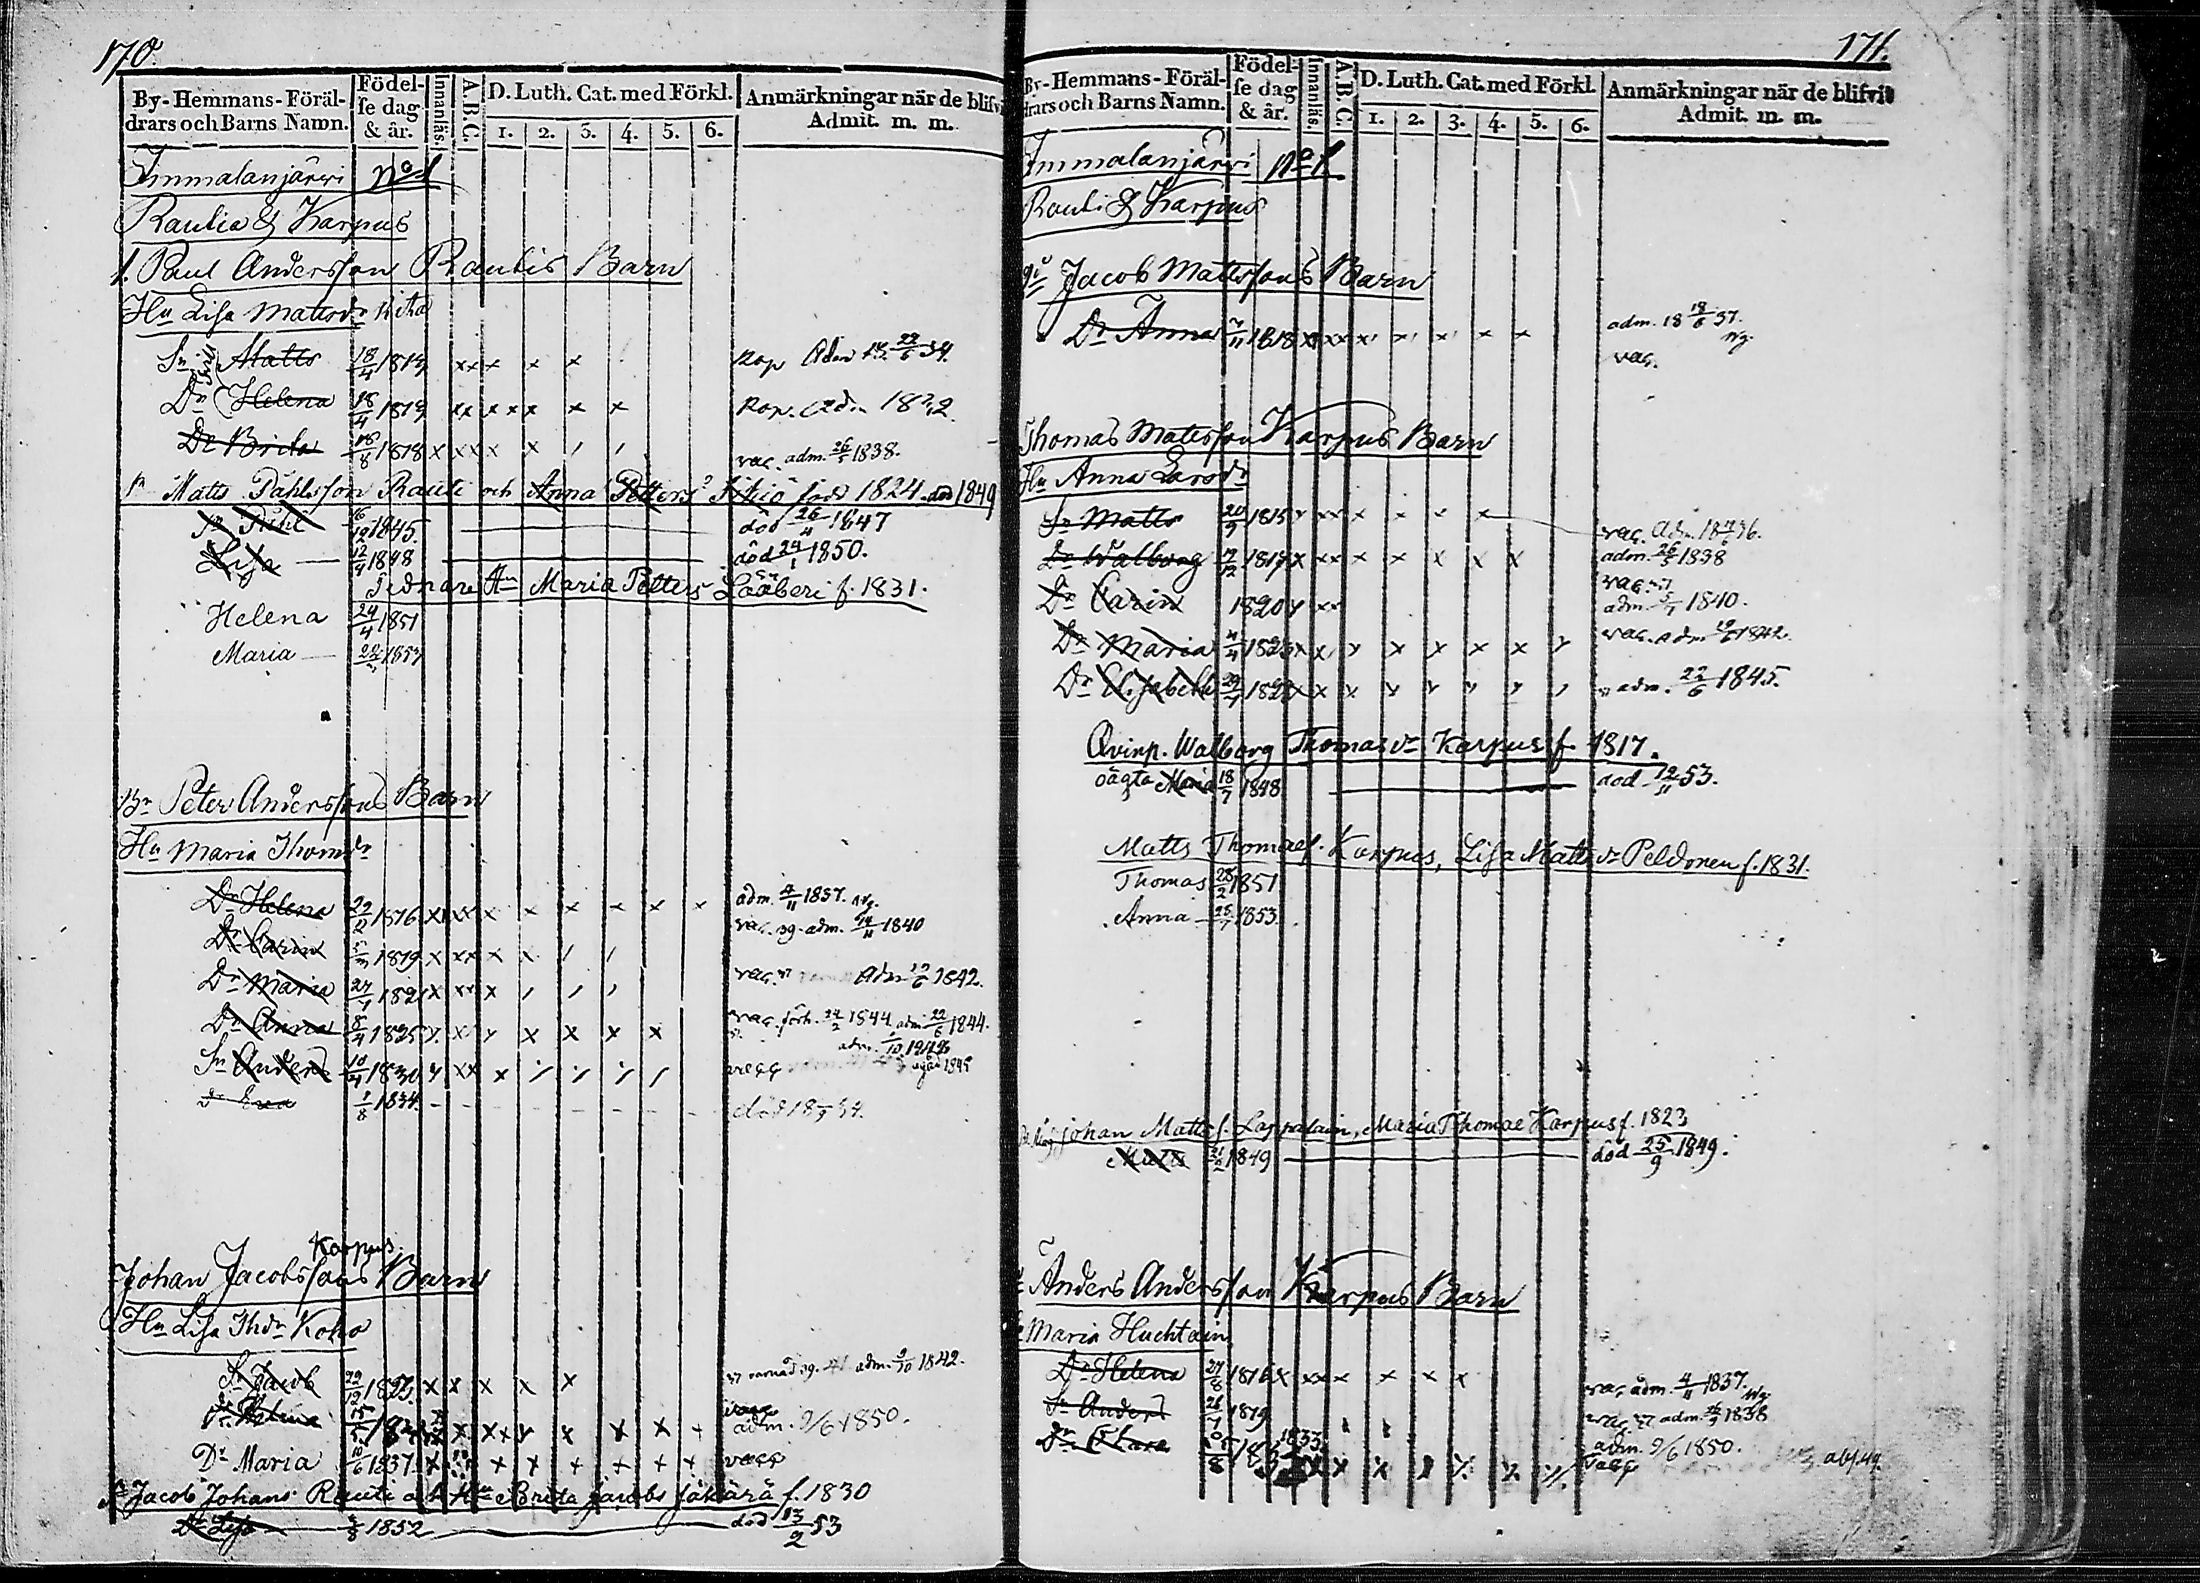 170.
By-Hemmans-Föräl-
drars och Barns Namn.
Födel-
se dag
& år.
Innanläs.
A.B.C.
D. Luth. Cat. med Förkl.
1. 2. 3. 4. 5. 6.
Anmärkningar när de blifvi
Admit. m. m.
Immalanjärwi No 1
Rautia & Karpus
1. Paul Andersson Rautis Barn
Hu Lisa Mattsdr
Sn Matts 18/4 1819 x x x x x Kop Adm 22/6 34.
Dr Helena 18/4 1819 x x x x x x x Kop. Adm
Dr Brita 1818 x x x x x vac. adm. 26/5 1838.
Sn Matts Påhlsson Rauti och Anna Petters född 1824. död 1849
Sn Påhl 16/12 1845. död 26/4 1847
Lisa 1848 död 24/1 1850.
Sednare Hu Maria Petters Lääberi f. 1831.
Helena 24/4 1851
Maria 1853
Br Peter Anderssons Barn
Hu Maria Thomdr
Dr Helena 1816 x x x x x x x x x adm. 4/11 1837.
Dr Carin 1819 x x x x x vac. adm. 14/11 1840
Dr Maria 1821 x x x x vac. Adm 1842.
Dr Anna 8/4 1825 x x x x x x vac. förh. 24/2 1844 adm 22/6 1844.
Sn Anders 10/4 1830 x x x
Dr Eva 1/8 1834. död
Karpus
Johan Jacobssons Barn
Hu Lisa Thdr Koho
Sn Jacob 22/12 1823 x x x x x adm. 9/10 1842.
Dr Helena x x x x x x x adm. 9/6 1850.
Dr Maria 10/6 1837 x x x x x x vacc
Sn Jacob Johans Rauti och Hu Brita Jacobs f. 1830
Dr Lisa 1852 död 13/2 53
171.
By-Hemmans-Föräl-
drars och Barns Namn.
Födel-
se dag
& år.
Innanläs.
A.B.C.
D. Luth. Cat. med Förkl.
1. 2. 3. 4. 5. 6.
Anmärkningar när de blifvit
Admit. m. m.
Immalanjärwi No 1.
Rauti & Karpus
Jacob Mattssons Barn
Dr Anna 1818 x x x x x x x x adm. 37.
vac.
Thomas Matsson Karpus Barn
Hu Anna Larsdr
Sn Matts 20/9 1815 x x x x x x vac. Adm. 36.
Dr Walborg 1817 x x x x x x x x adm. 26/5 1838
Dr Carin 1820 x x x vac. adm. 1840.
Dr Maria 4/4 1823 x x x x x x x x vac. adm 1842.
Dr Elisabeth x x x x adm. 22/6 1845.
Qvinp. Walborg Thomasdr Karpus f. 1817.
oägta Maria 18/7 1848 död 12/11 53.
Matts Thomaes. Karpus, Lisa Mattsdr Peldonen f. 1831.
Thomas 28/2 1851
Anna 1853.
Johan Matts s. Lappalain, Maria Thomae Karpus f. 1823
Matts 1849 död 25/9 1849.
Anders Andersson Karpus Barn
Maria Huchtain
Dr Helena 27/8 1816 x x x x x x x vac adm. 4/11 1837.
Sn Anders 1819 vac adm. 1838
Dr Clara 1833 adm. 9/6 1850.
vacc